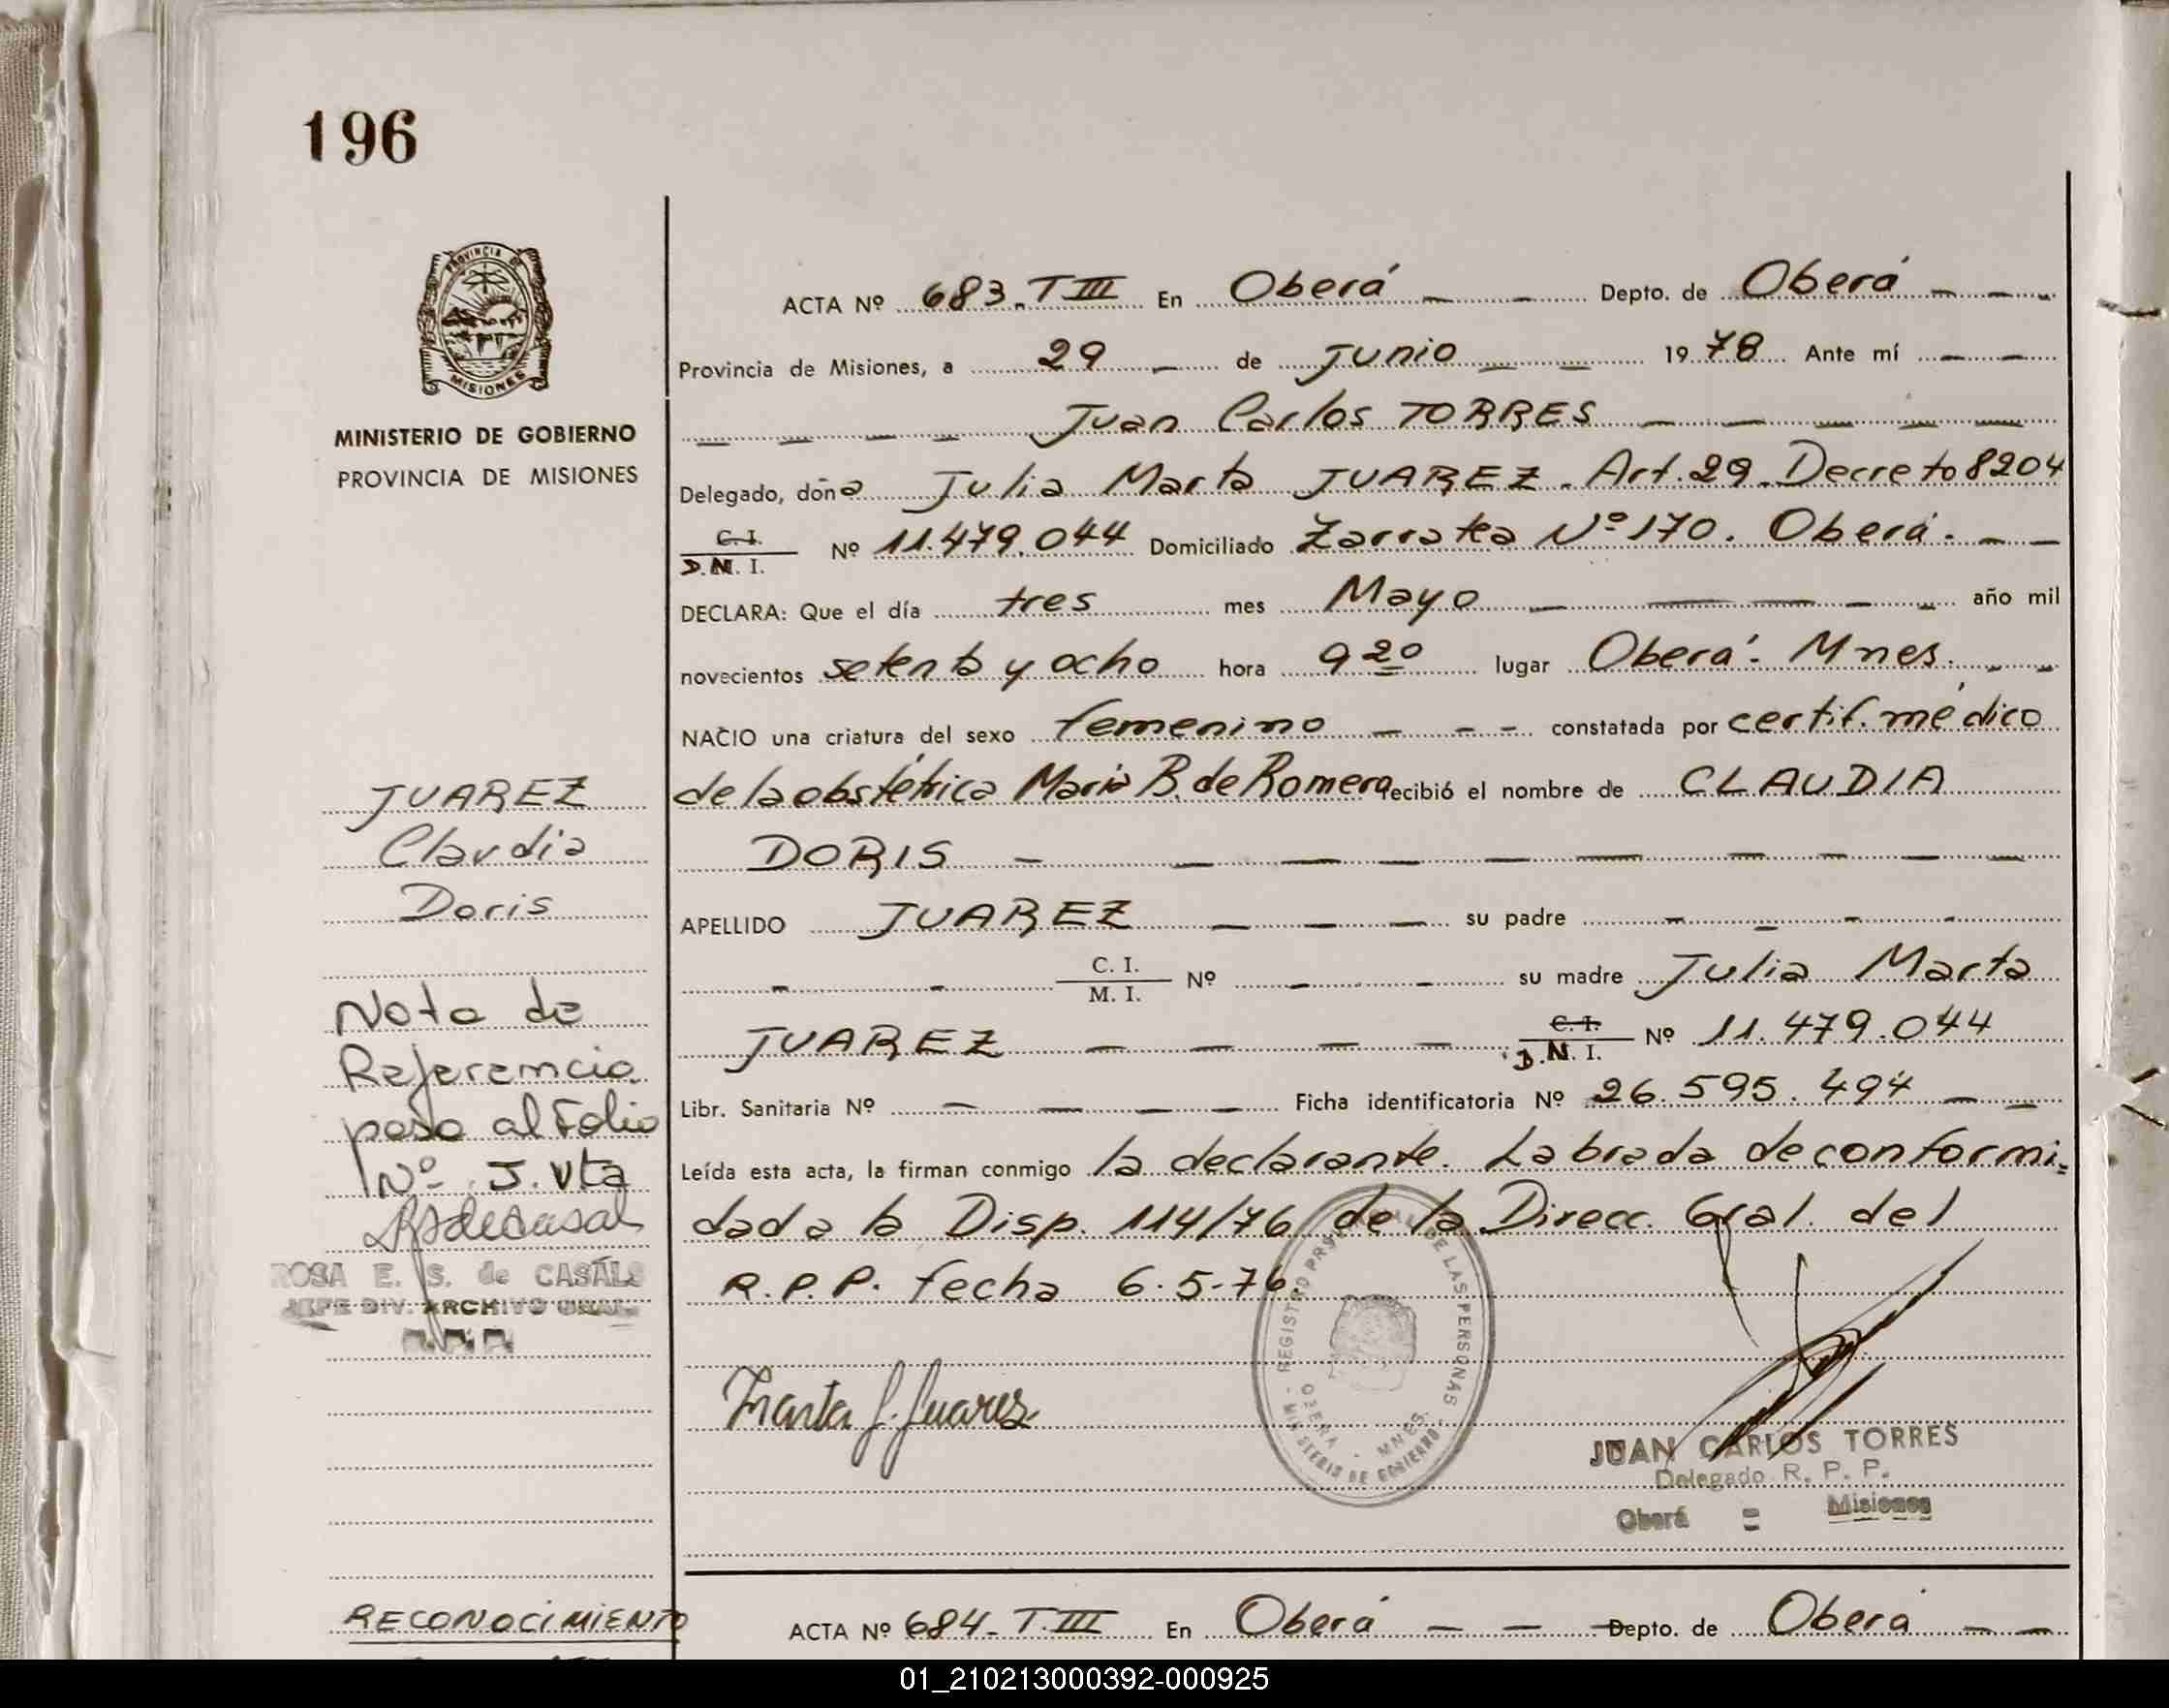 196
PROVINCIA DE
MISIONES
MINISTERIO DE GOBIERNO
PROVINCIA DE MISIONES
ACTA Nº 683. T III En Oberá Depto. de Oberá
Provincia de Misiones, a 29 de Junio 19 78 Ante mí
Juan Carlos TORRES
Delegado, doña Julia Marta JUAREZ. Art. 29. Decreto 8204
C. I.
D.N. I. Nº 11.479.044 Domiciliado Zarratea Nº 170. Oberá.
DECLARA: Que el día tres mes Mayo año mil
novecientos setenta y ocho hora 9 20 lugar Oberá. Mnes.
NACIO una criatura del sexo femenino constatada por certif. médico
de la obstétrica Maria B. de Romero recibió el nombre de CLAUDIA
DORIS
APELLIDO JUAREZ su padre
C. I.
M. I. Nº su madre Julia Marta
JUAREZ C. I.
D.N. I. Nº 11.479.044
Libr. Sanitaria Nº Ficha identificatoria Nº 26.595.494
Leída esta acta, la firman conmigo la declarante. Labrada de conformi-
dad a la Disp. 114/76 de la Direcc. Gral. del
R.P.P. fecha 6.5.76
JUAREZ
Claudia
Doris
Nota de
Referencia
pasa al Folio
Nº J. vta
ROSA E. S. de CASALS
JEFE DIV. ARCHIVO GRAL.
R.P.P.
Marta J. Juarez
REGISTRO PROVINCIAL DE LAS PERSONAS
MINISTERIO DE GOBIERNO
OBERA - MNES.
JUAN CARLOS TORRES
Delegado R. P. P.
Oberá - Misiones
RECONOCIMIENTO
ACTA Nº 684. T. III En Oberá Depto. de Oberá
01_210213000392-000925